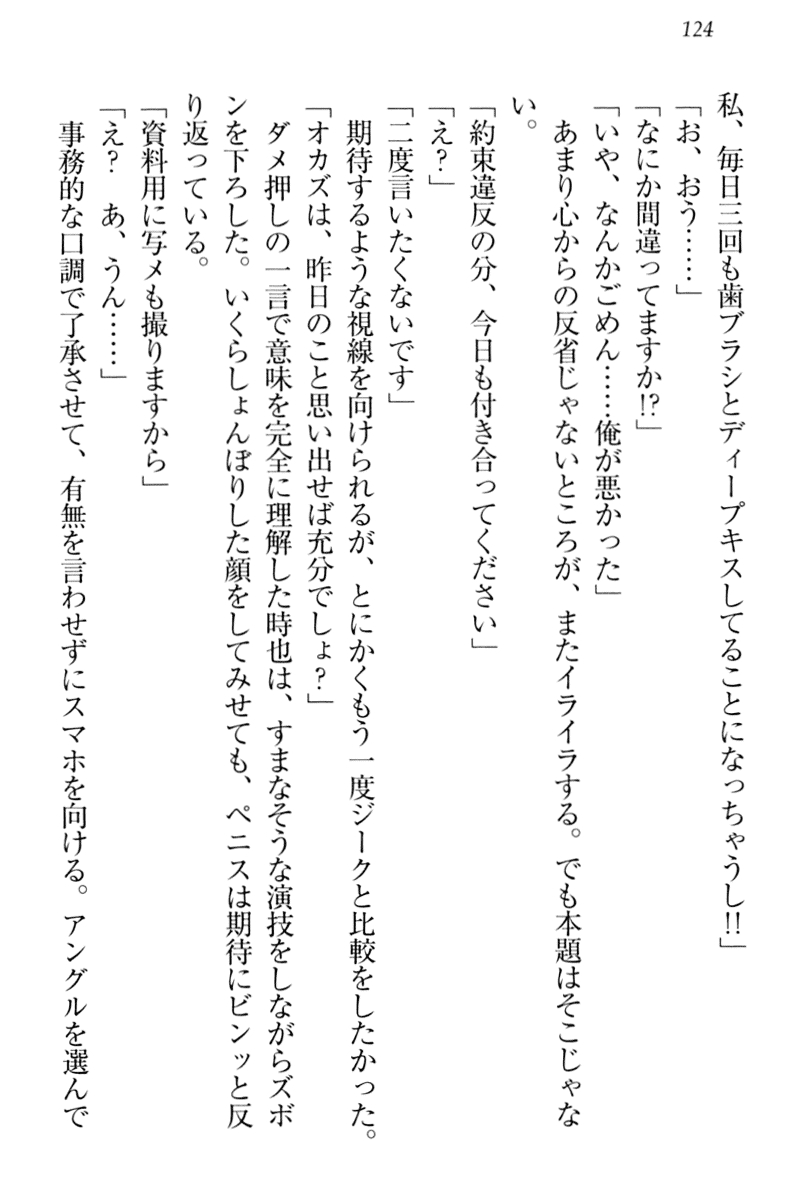 124
私、毎日三回も歯ブラシとディープキスしてることになっちゃうし!!」
「お、おう……」
「なにか間違ってますか!?」
「いや、なんかごめん……俺が悪かった」
あまり心からの反省じゃないところが、またイライラする。でも本題はそこじゃな
い。
「約束違反の分、今日も付き合ってください」
「え?」
「二度言いたくないです」
期待するような視線を向けられるが、とにかくもう一度ジークと比較をしたかった。
「オカズは、昨日のこと思い出せば充分でしょ?」
ダメ押しの一言で意味を完全に理解した時也は、すまなそうな演技をしながらズボ
ンを下ろした。いくらしょんぼりした顔をしてみせても、ペニスは期待にビンッと反
り返っている。
「資料用に写メも撮りますから」
「え? あ、うん……」
事務的な口調で了承させて、有無を言わせずにスマホを向ける。アングルを選んで